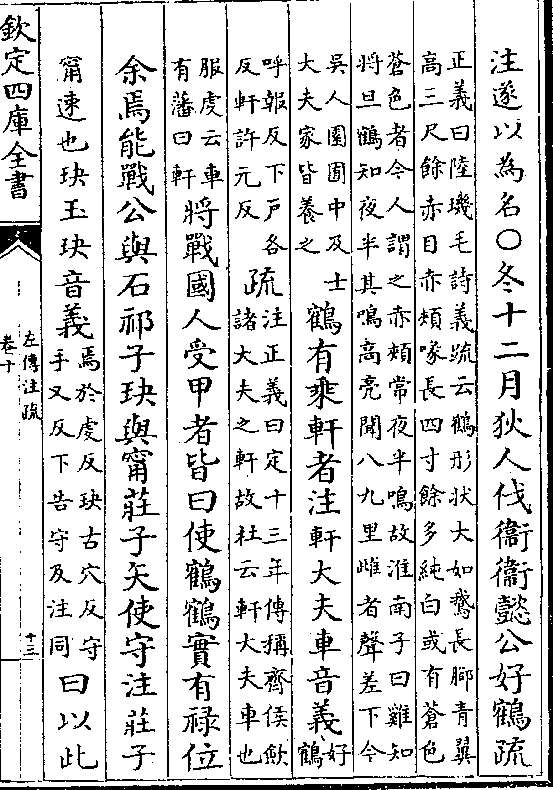 注遂以為名○冬十二月狄人伐衞衞懿公好鶴疏
正義曰陸璣毛詩義疏云鶴形狀大如鵞長脚青翼
高三尺餘赤目赤頰喙長四寸餘多純白或有蒼色
蒼色者今人謂之赤頰常夜半鳴故淮南子曰雞知
將旦鶴知夜半其鳴高亮聞八九里雌者聲差下今
吳人園囿中及士
大夫家皆養之
鶴有乘軒者注軒大夫車音義
好
鶴
呼報反下戸各
反軒許元反
疏
注正義曰定十三年傳稱齊侯斂
諸大夫之軒故杜云軒大夫車也
服虔云車
有藩曰軒
將戰國人受甲者皆曰使鶴鶴實有禄位
余焉能戰公與石祁子玦與甯莊子矢使守注莊子
甯速也玦玉玦音義
焉於虔反玦古穴反守
手又反下告守及注同
曰以此
欽定四庫全書
左傳注疏
卷十
十三